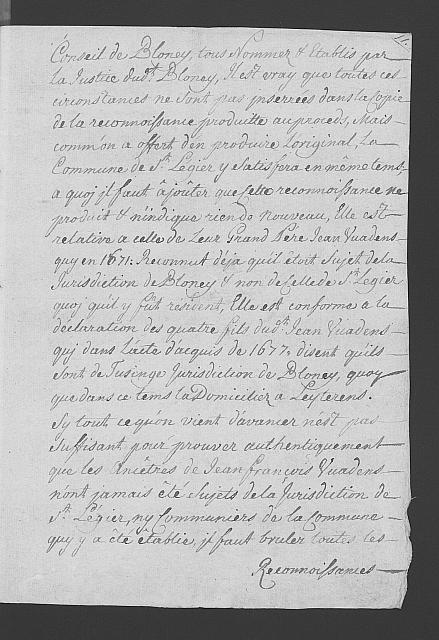 11.
Conseil de Bloney, tous Nommez & Etablis par
la Justice dud.t Bloney, Il est vray que toutes ces
circonstances ne sont pas inserrées dans la Copie
de la reconnoissance produitte au procès, Mais
comm'on a offert d'en produire l'original, La
Commune de S.t Légier y satisfera en même tems,
a quoj il faut ajoûter que cette reconnoissance ne
produit & n'indique rien de nouveau, Elle est
relative a celle de Leur Grand Père Jean Vuadens
quy en 1671. Reconnut déja qu'il étoit Sujet de la
Jurisdiction de Bloney & non de Celle de S.t Légier
quoj qu'il y fût résident, Elle est conforme a la
déclaration des quatre fils dud.t Jean Vuadens
quj dans l'acte d'acquis de 1677. disent qu'ils
sont de Tusinge Jurisdiction de Bloney, quoy
que dans ce tems la Domiciliez a Leyterens.
Sy tout ce qu'on vient d'avancer n'est pas
suffisant pour prouver authentiquement
que les Ancêtres de Jean François Vuadens
n'ont jamais été Sujets de la Jurisdiction de
S.t Légier, ny Communiers de la Commune
quy y a été établie, il faut bruler toutes les
Reconnoissances